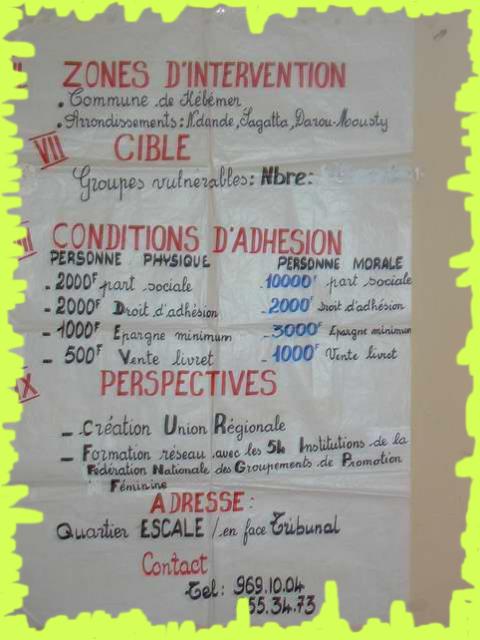 ZONES D'INTERVENTION
• Commune de Kébémer
• Arrondissements: Ndande, Sagatta, Darou-Mousty
VII CIBLE
Groupes vulnérables: Nbre:
CONDITIONS D'ADHESION
PERSONNE PHYSIQUE PERSONNE MORALE
- 2000F part sociale - 10000F part sociale
- 2000F Droit d'adhésion - 2000F Droit d'adhésion
- 1000F Epargne minimum - 3000F Epargne minimum
- 500F Vente livret - 1000F Vente livret
IX PERSPECTIVES
- Création Union Régionale
- Formation réseau avec les 54 Institutions de la
Fédération Nationale des Groupements de Promotion
Féminine
ADRESSE:
Quartier ESCALE / en face Tribunal
Contact
Tel: 969.10.04
55.34.73